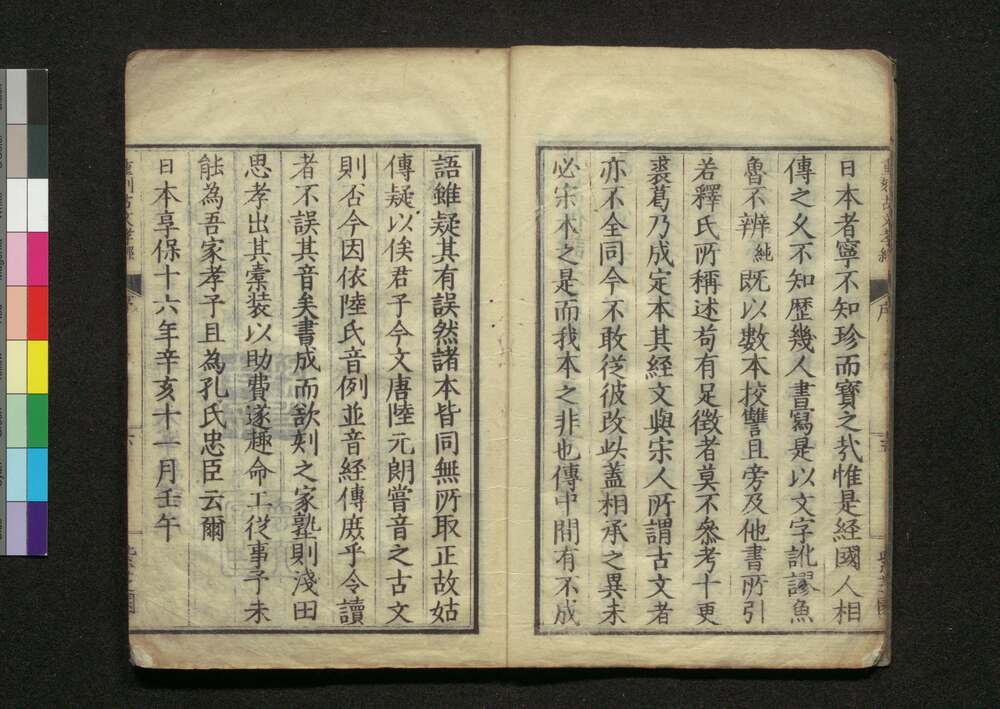 日本者寧不知珍而寶之㢤惟是經國人相
傳之久不知歷幾人書寫是以文字訛謬魚
魯不辨純既以數本挍讐且旁及他書所引
若釋氏所稱述苟有足徵者莫不叅考十更
裘葛乃成定本其經文與宋人所謂古文者
亦不全同今不敢從彼改此蓋相承之異未
必宋本之是而我本之非也傳中間有不成
語雖疑其有誤然諸本皆同無所取正故姑
傳疑以俟君子今文唐陸元朗嘗音之古文
則否今因依陸氏音例並音經傳庶乎令讀
者不誤其音矣書成而欲刻之家塾則淺田
思孝出其橐裝以助費遂趣命工從事予未
能為吾家孝子且為孔氏忠臣云爾
日本享保十六年辛亥十一月壬午